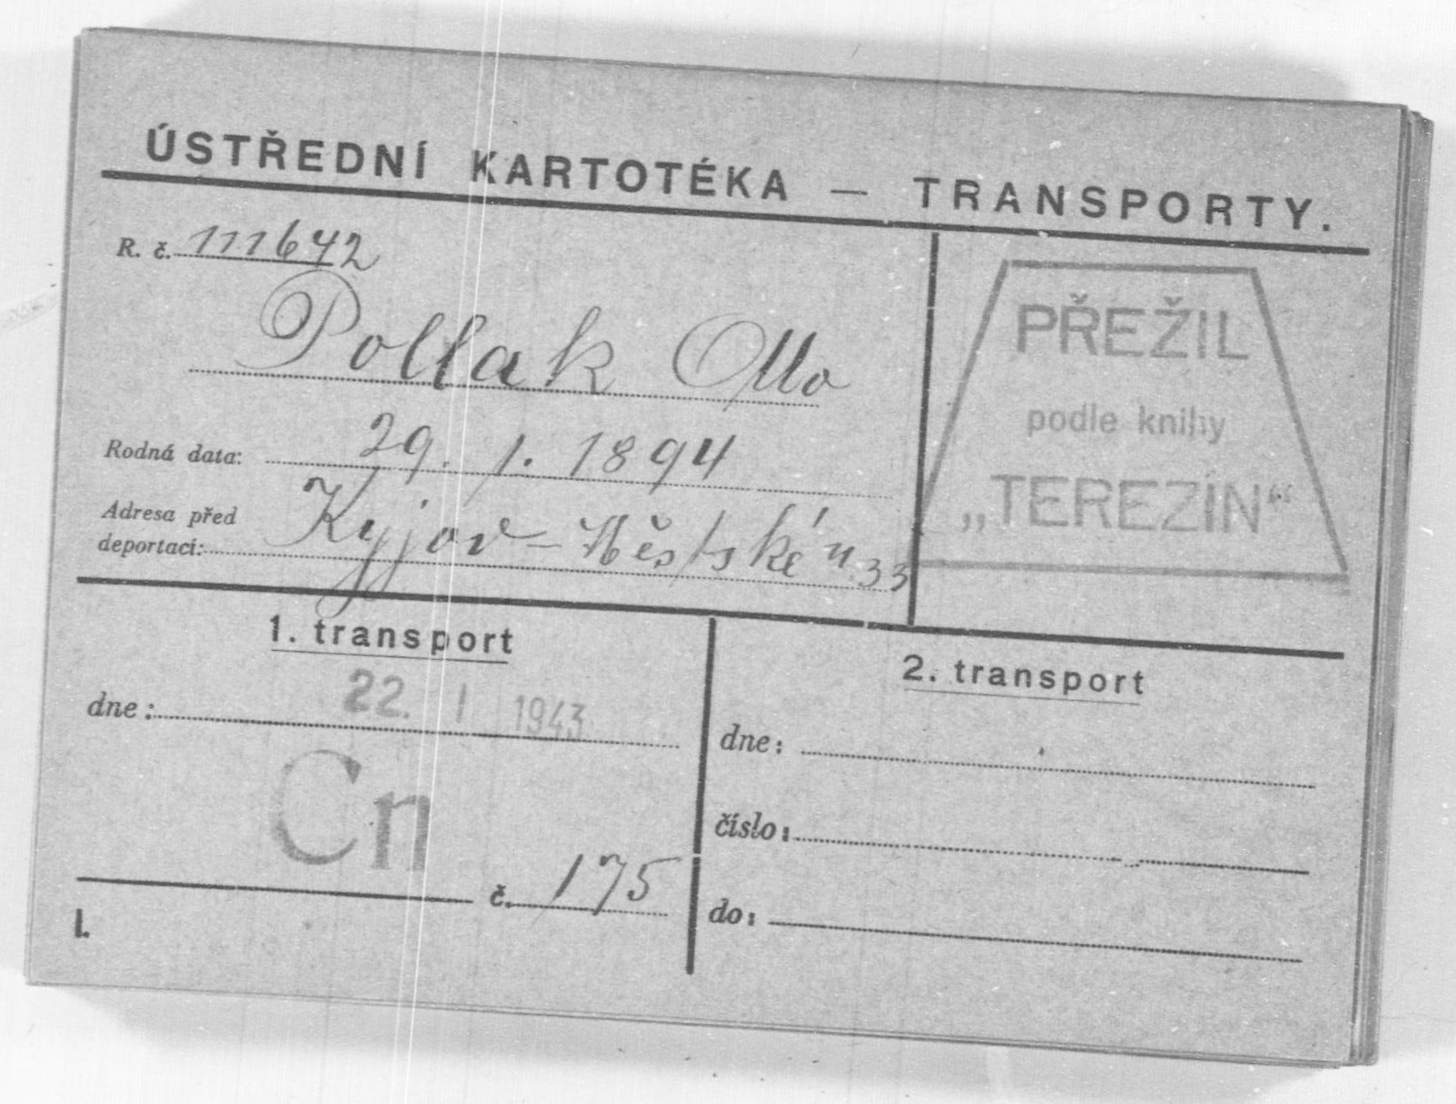 ÚSTŘEDNÍ KARTOTÉKA — TRANSPORTY.
R. č. 111642
Pollak Otto
Rodná data: 29. 1. 1894
Adresa před
deportací: Kyjov – Městské n. 33
PŘEŽIL
podle knihy
„TEREZÍN“
1. transport
dne: 22. I 1943
Cn
č. 175
I.
2. transport
dne:
číslo:
do: